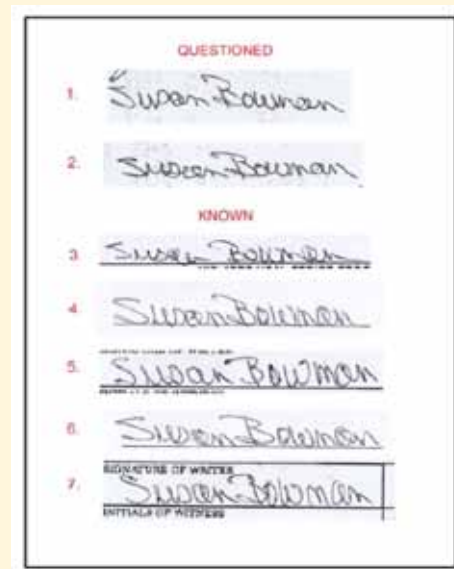 QUESTIONED
1. Susan Bowman
2. Susan Bowman
KNOWN
3. Susan Bowman
4. Susan Bowman
5. Susan Bowman
6. Susan Bowman
SIGNATURE OF WRITER
7. Susan Bowman
INITIALS OF WITNESS